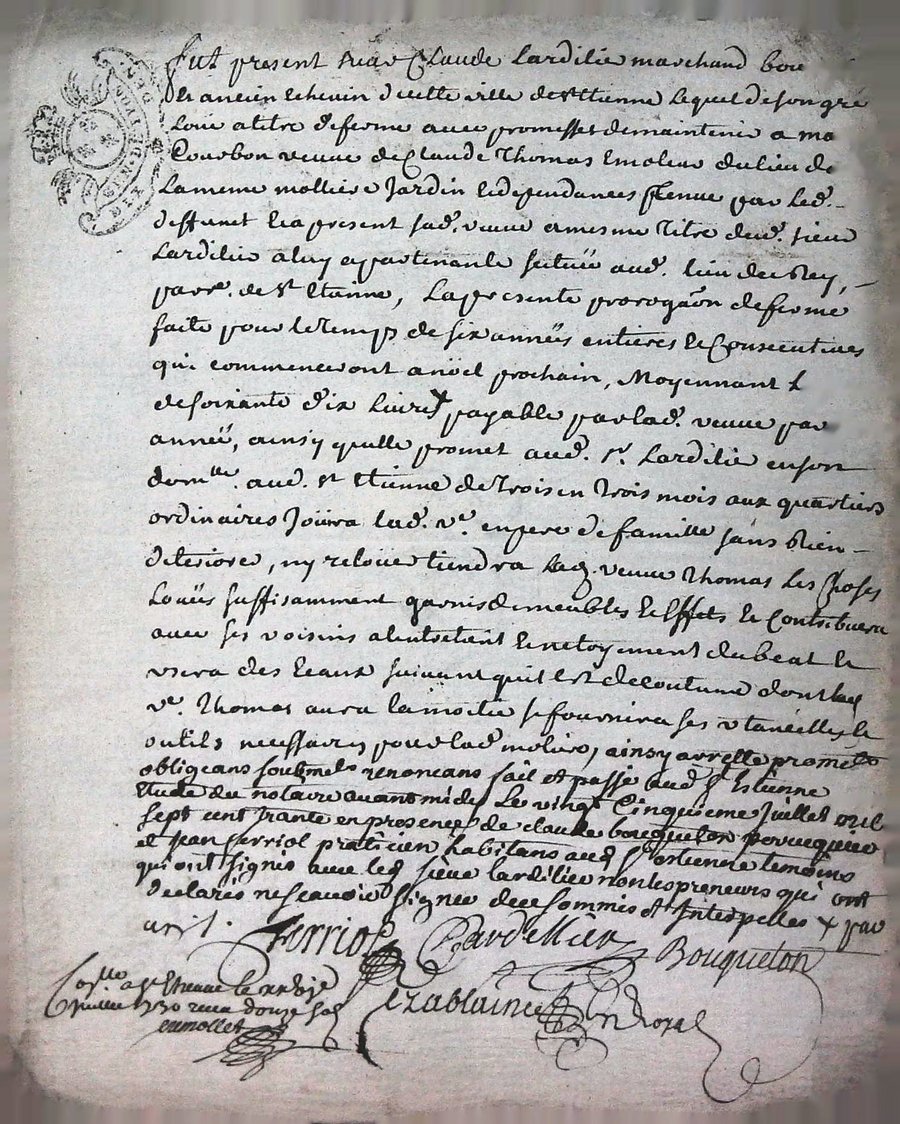 fut present sieur Claude Lardilie marchand
et ancien Echevin d'icelle ville de st Etienne Lequel de son gre
Loue a titre de ferme avec promesses de maintenir a
Courbon veuve de Claude Thomas Emoleur du lieu de
La meme molliere Jardin Et dependances tenue par Led.
deffunct Et a present lad. veuve a mesme Titre dud. sieur
Lardilie a luy appartenante scituée aud. lieu de Rey,
parre. de st Etienne, La presente prorogaon de ferme
faite pour le temps de six années entieres Et Consecutives
qui commenceront a noel prochain, Moyennant
de soixante dix Livres payable par lad. veuve par
année, ainsy qu'elle promet aud. sr. Lardilie en son
domlle. aud. st Etienne de Trois en Trois mois aux quartiers
ordinaires Joüira lad. ve. en pere de famille sans Rien
deteriore, ny reloüer tiendra lad. veuve Thomas Les Choses
Loués suffisamment garnis de meubles Et Effets Et Contribuera
avec ses voisins a l'entretient Et netoyement du beat Et
usera des Eaux suivant quil est de coutume dont lad
ve. Thomas aura la moitie se fournira ses utancilles Et
outils necessaires pour lad moliere, ainsy arreste promet
obligeans soubmets renoncans fait et passé aud st Estienne
Etude du notaire avant midy Le vingt Cinquieme Juillet mil
sept cent trante en presence de claude bouqueton perruquier
et Jean ferriol praticien habitans aud st estienne temoins
qui ont signés avec led sieur lardilier non les preneurs qui ont
declarés ne scavoir signer de ce sommés et Interpellés
Ferriol Lardellier Bouqueton
Ezablaine n Royal
Collé a st Etienne le
juillet 1730 recu douze sols